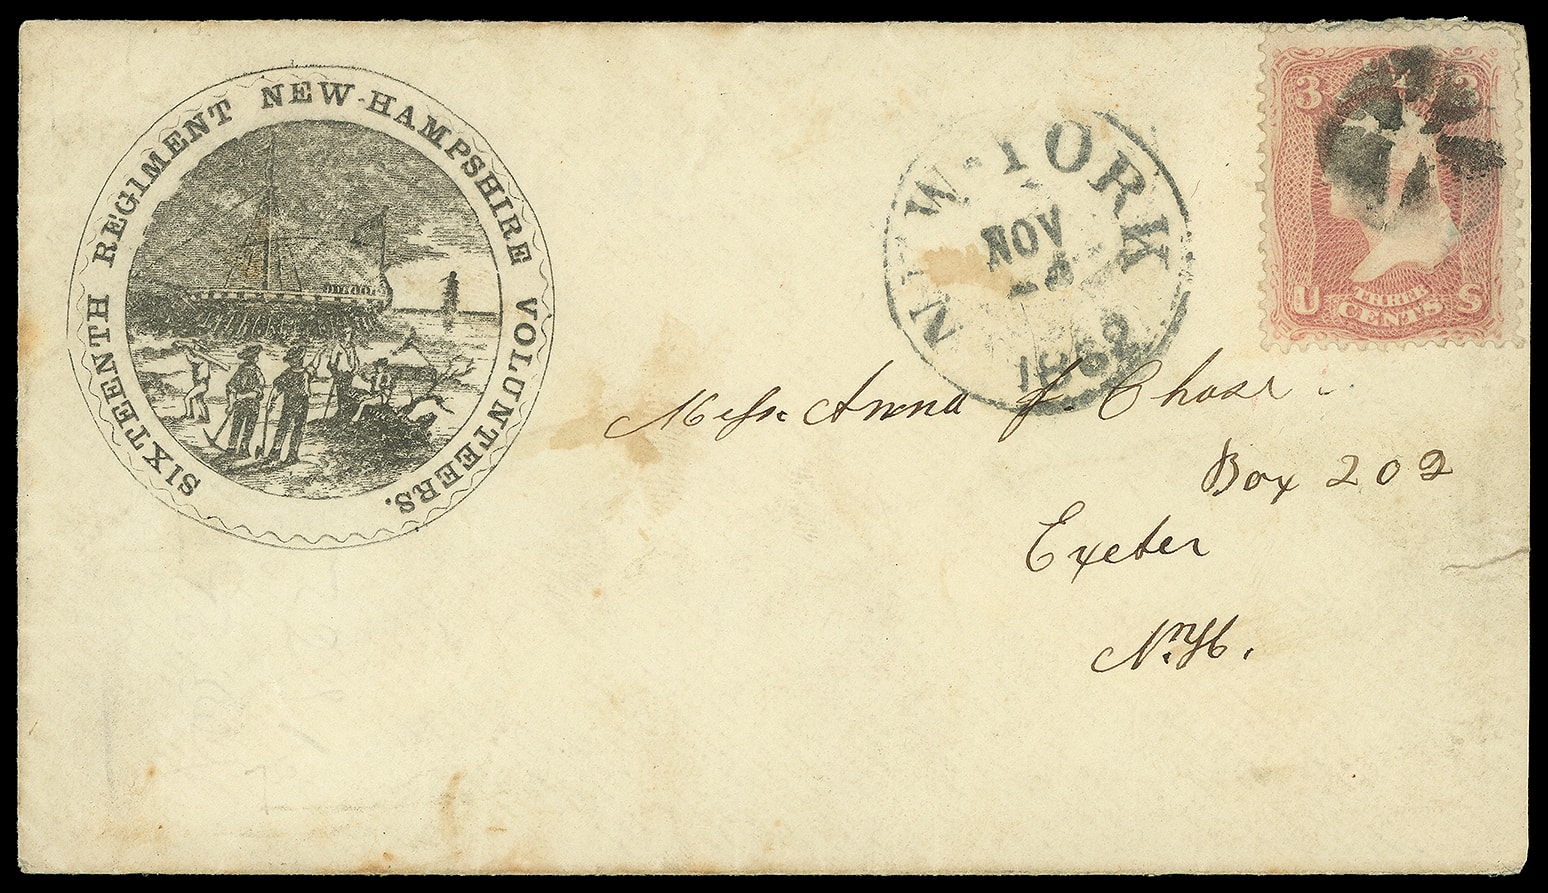 SIXTEENTH REGIMENT NEW-HAMPSHIRE VOLUNTEERS.
NEW-YORK
NOV
1862
3 3
U THREE CENTS S
Miss. Anna J. Chase
Box 202
Exeter
N. H.